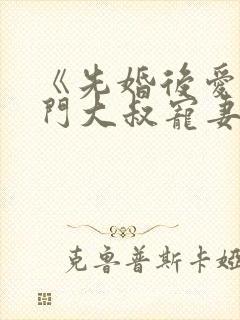 《先婚後愛
門大叔寵妻
克魯普斯卡婭